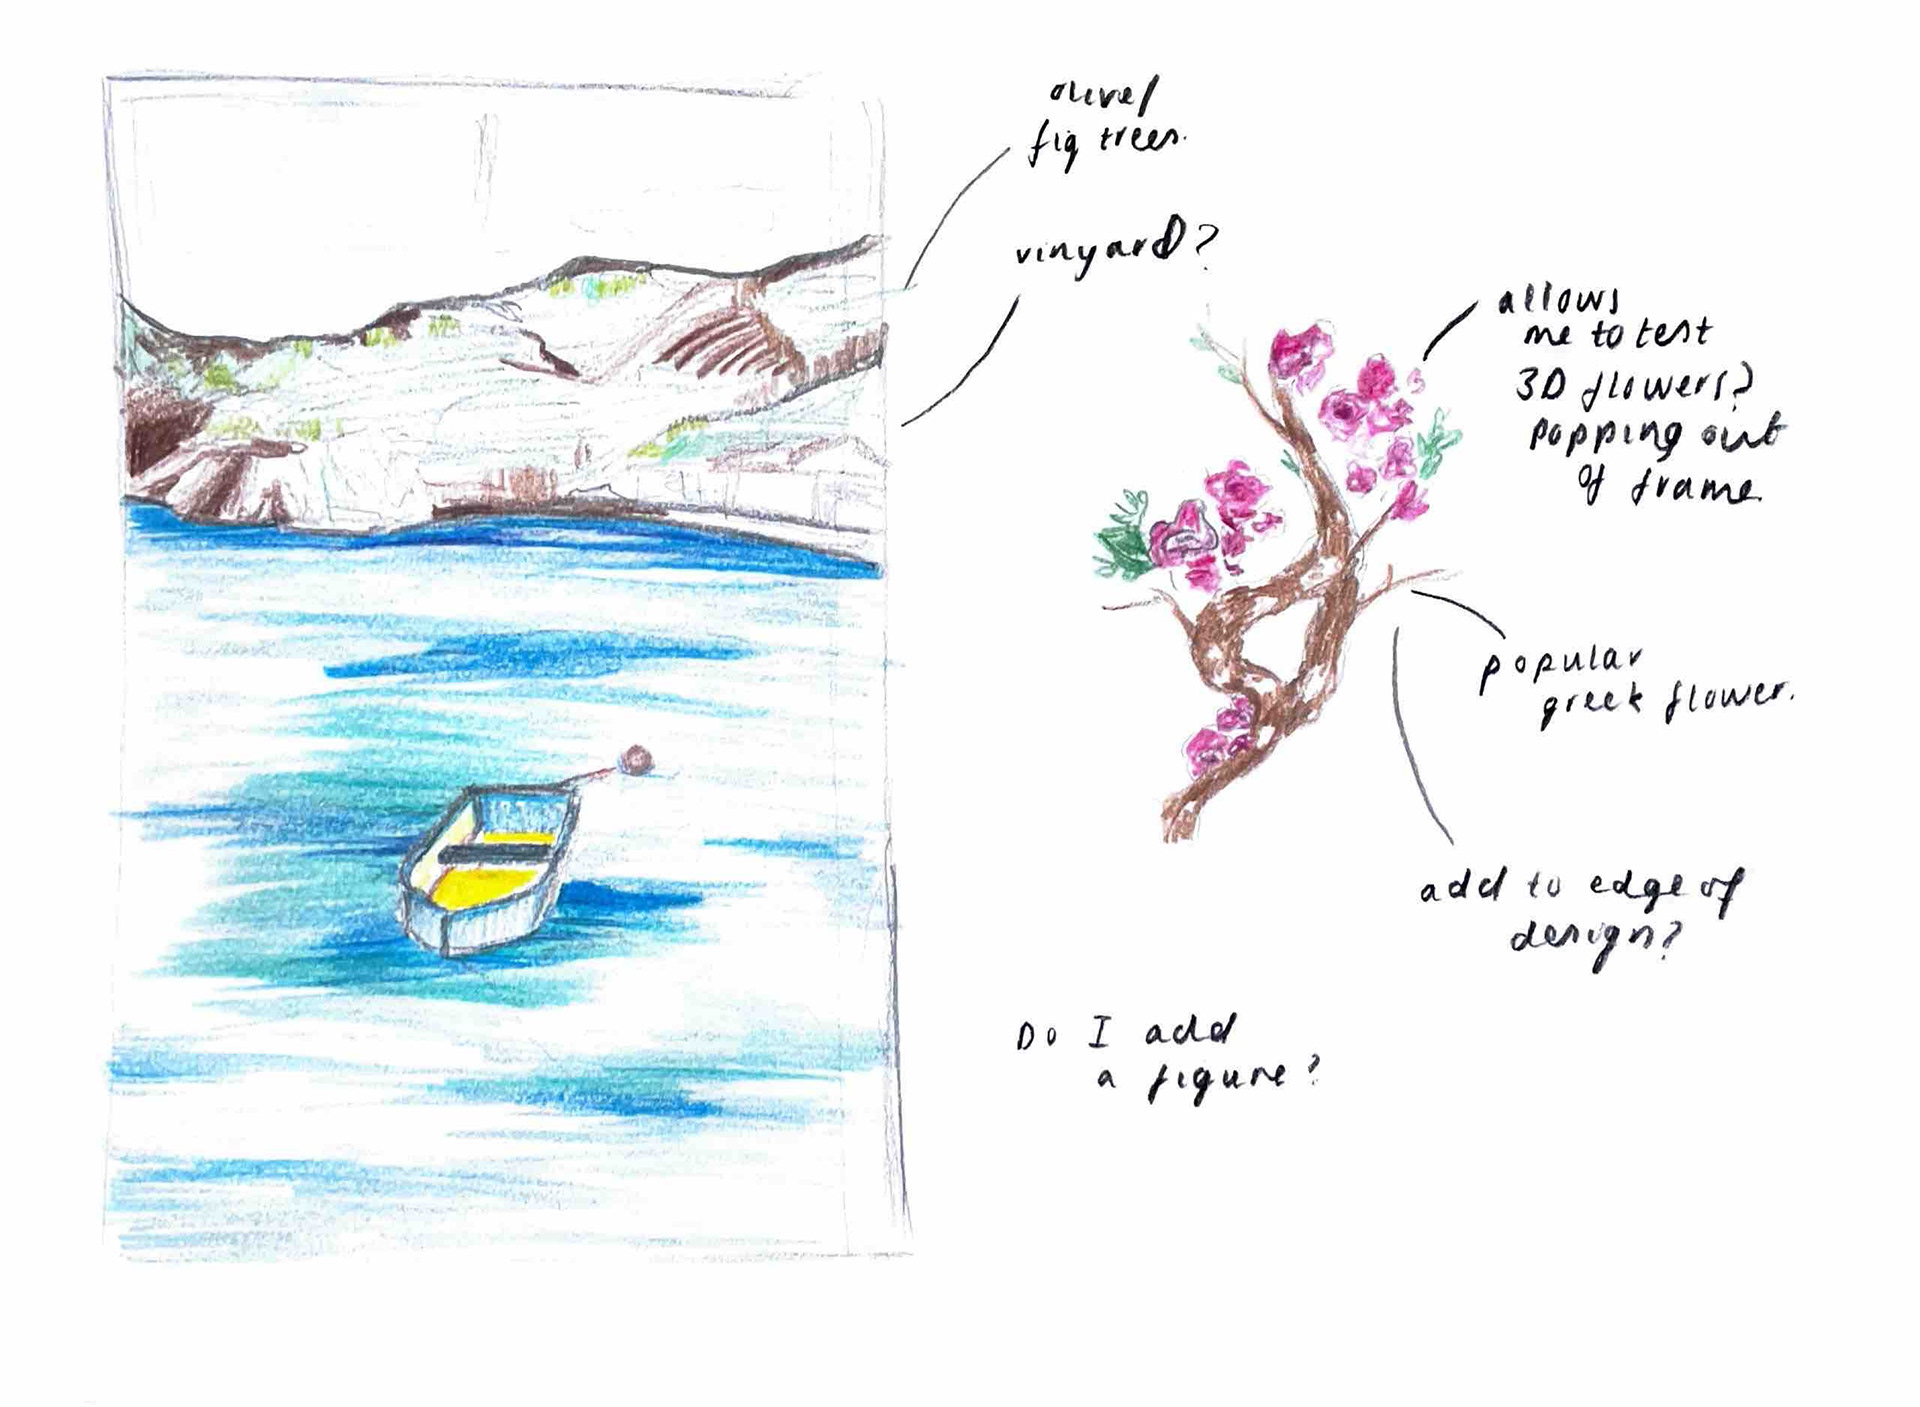 olive/
fig trees.
vinyard?
allows
me to test
3D flowers?
popping out
of frame.
popular
greek flower.
add to edge of
design?
Do I add
a figure?